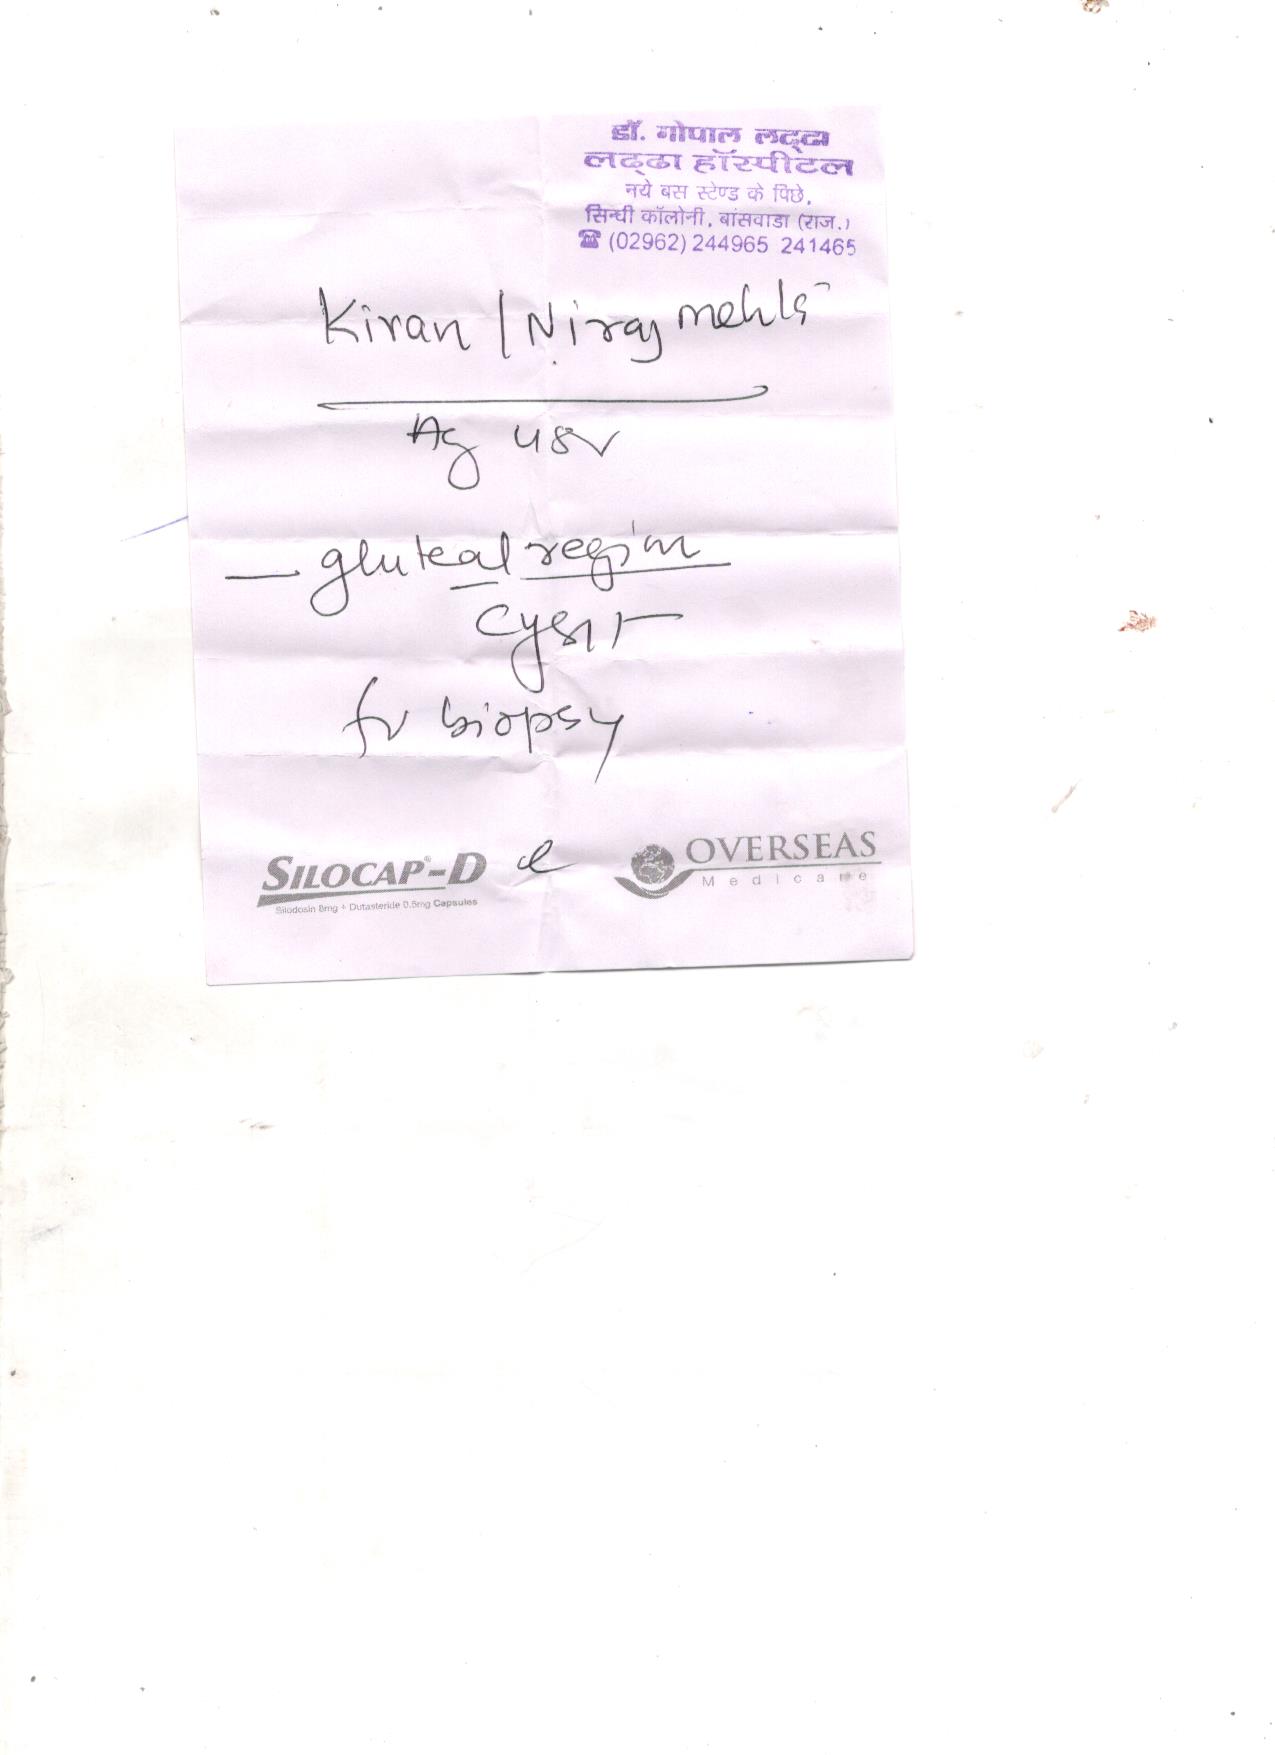 डॉ. गोपाल लद्ढा
लद्ढा हॉस्पीटल
नये बस स्टेण्ड के पिछे,
सिन्धी कॉलोनी, बांसवाडा (राज.)
☎ (02962) 244965 241465
Kiran / Niraj mehta
Ag 48
— gluteal region
Cyst
for biopsy
SILOCAP®-D
OVERSEAS
Silodosin 8mg + Dutasteride 0.5mg Capsules
Medicare